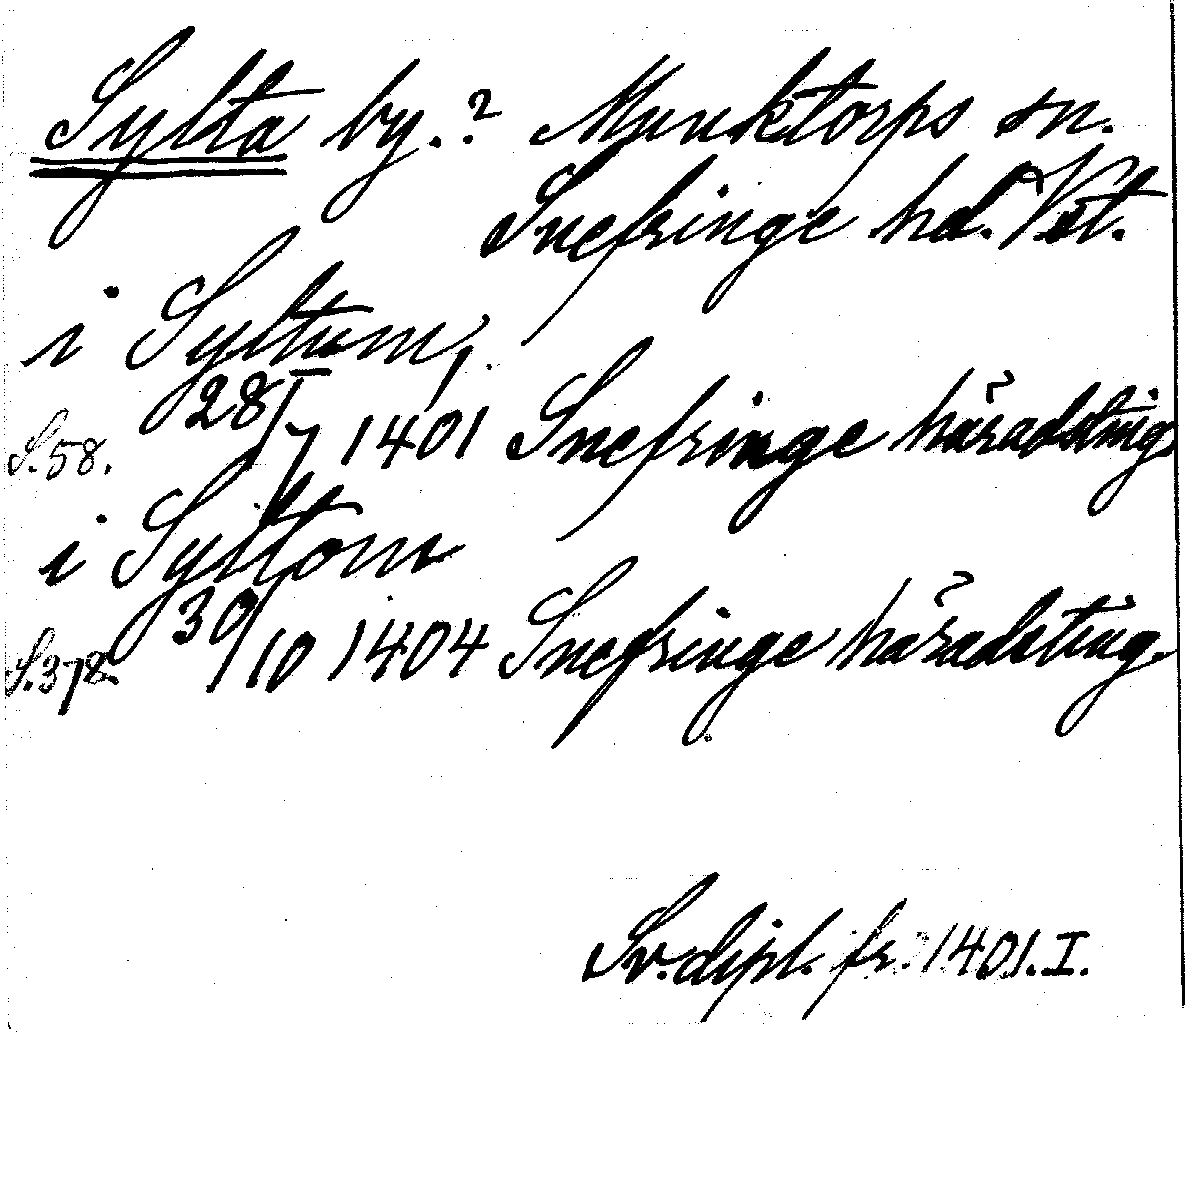 Sylta by.? Munktorps sn.
Snefringe hd. Vst.
i Syltum,
S.58. 28/7 1401 Snefringe häradsting.
i Syltom
S.378. 30/10 1404 Snefringe häradsting.
Sv. dipl. fr. 1401. I.